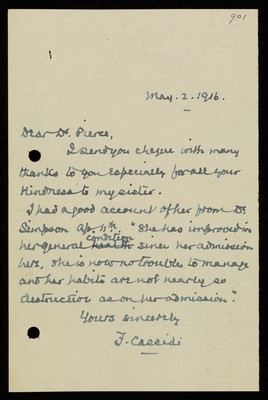 901
May. 2. 1916.
Dear Dr. Pierce,
I send you cheque with many
thanks to you especially for all your
kindness to my sister.
I had a good account of her from Dr.
Simpson Ap. 11th. "She has improved in
her general health condition since her admission
here, she is now no trouble to manage
and her habits are not nearly so
destructive as on her admission".
Yours sincerely
F. Cassidi